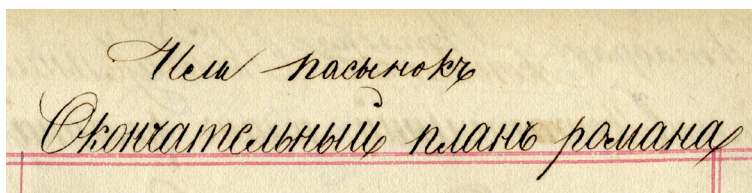 пасынокъ
Окончательный планъ романа